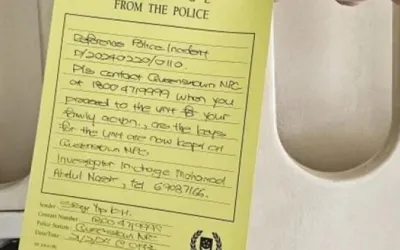 FROM THE POLICE
Reference Police Incident
D/20240220/0110.
Pls contact Queenstown NPC
at 1800 4719999 when you
proceed to the unit for your
family action, as the keys
for the unit are now kept at
Queenstown NPC
Investigator in-charge Mohamad
Abdul Nasir, tel 69087166.
Sender:
Contact Number: 1800 4719999
Police Station: Queenstown NPC
Date/Time: